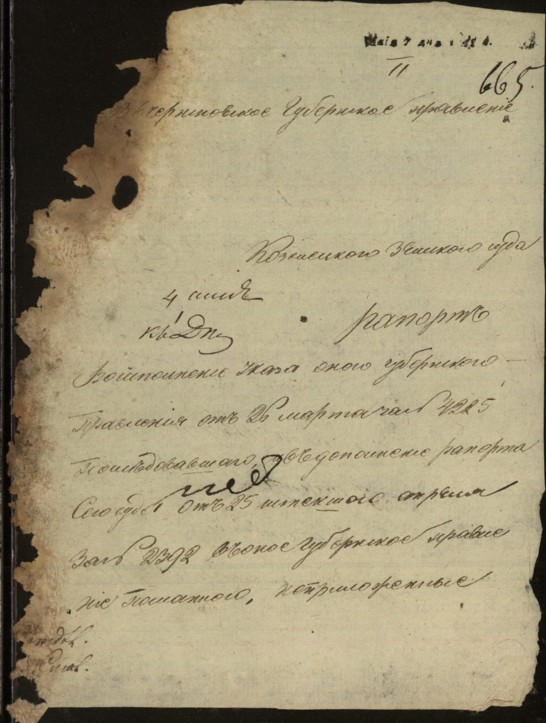 Маія 7 дня
11
665.
Черниговское Губернское правленіе
Козелецкого Земского суда
4 стол
рапортъ
Воисполненіе Указа оного губернского
Правления отъ 26 марта за № 4225
Последовавшаго, въ дополненіе рапорта
Сего суда отъ 25 апреля
За № 2392 въ оное Губернское правле
ніе Посланного, приложенные